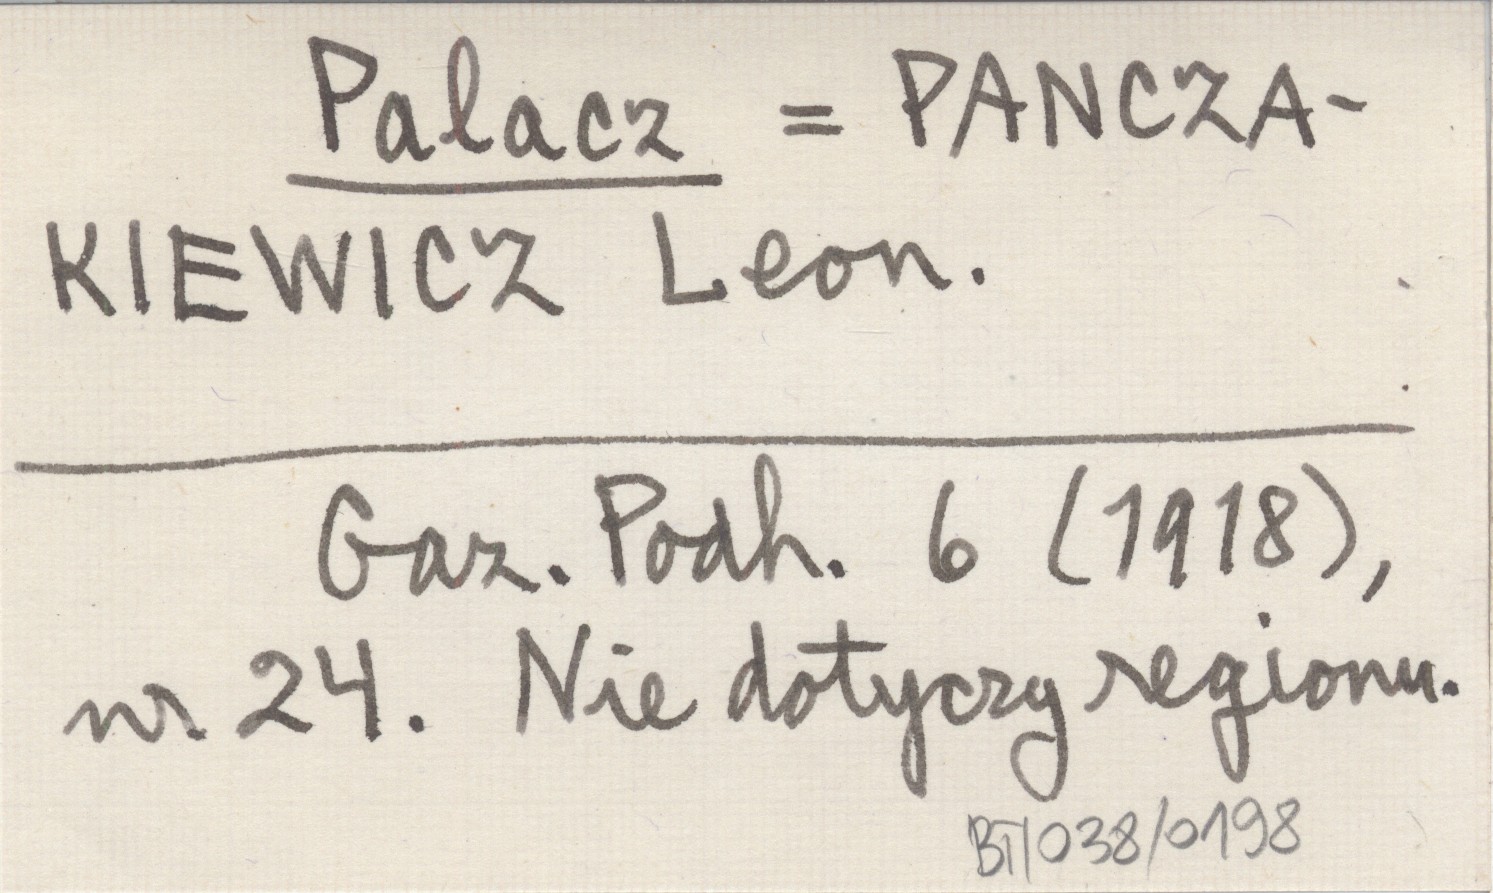 Palacz = PANCZA-
KIEWICZ Leon.
Gaz. Podh. 6 (1918),
nr 24. Nie dotyczy regionu.
BT/038/0198